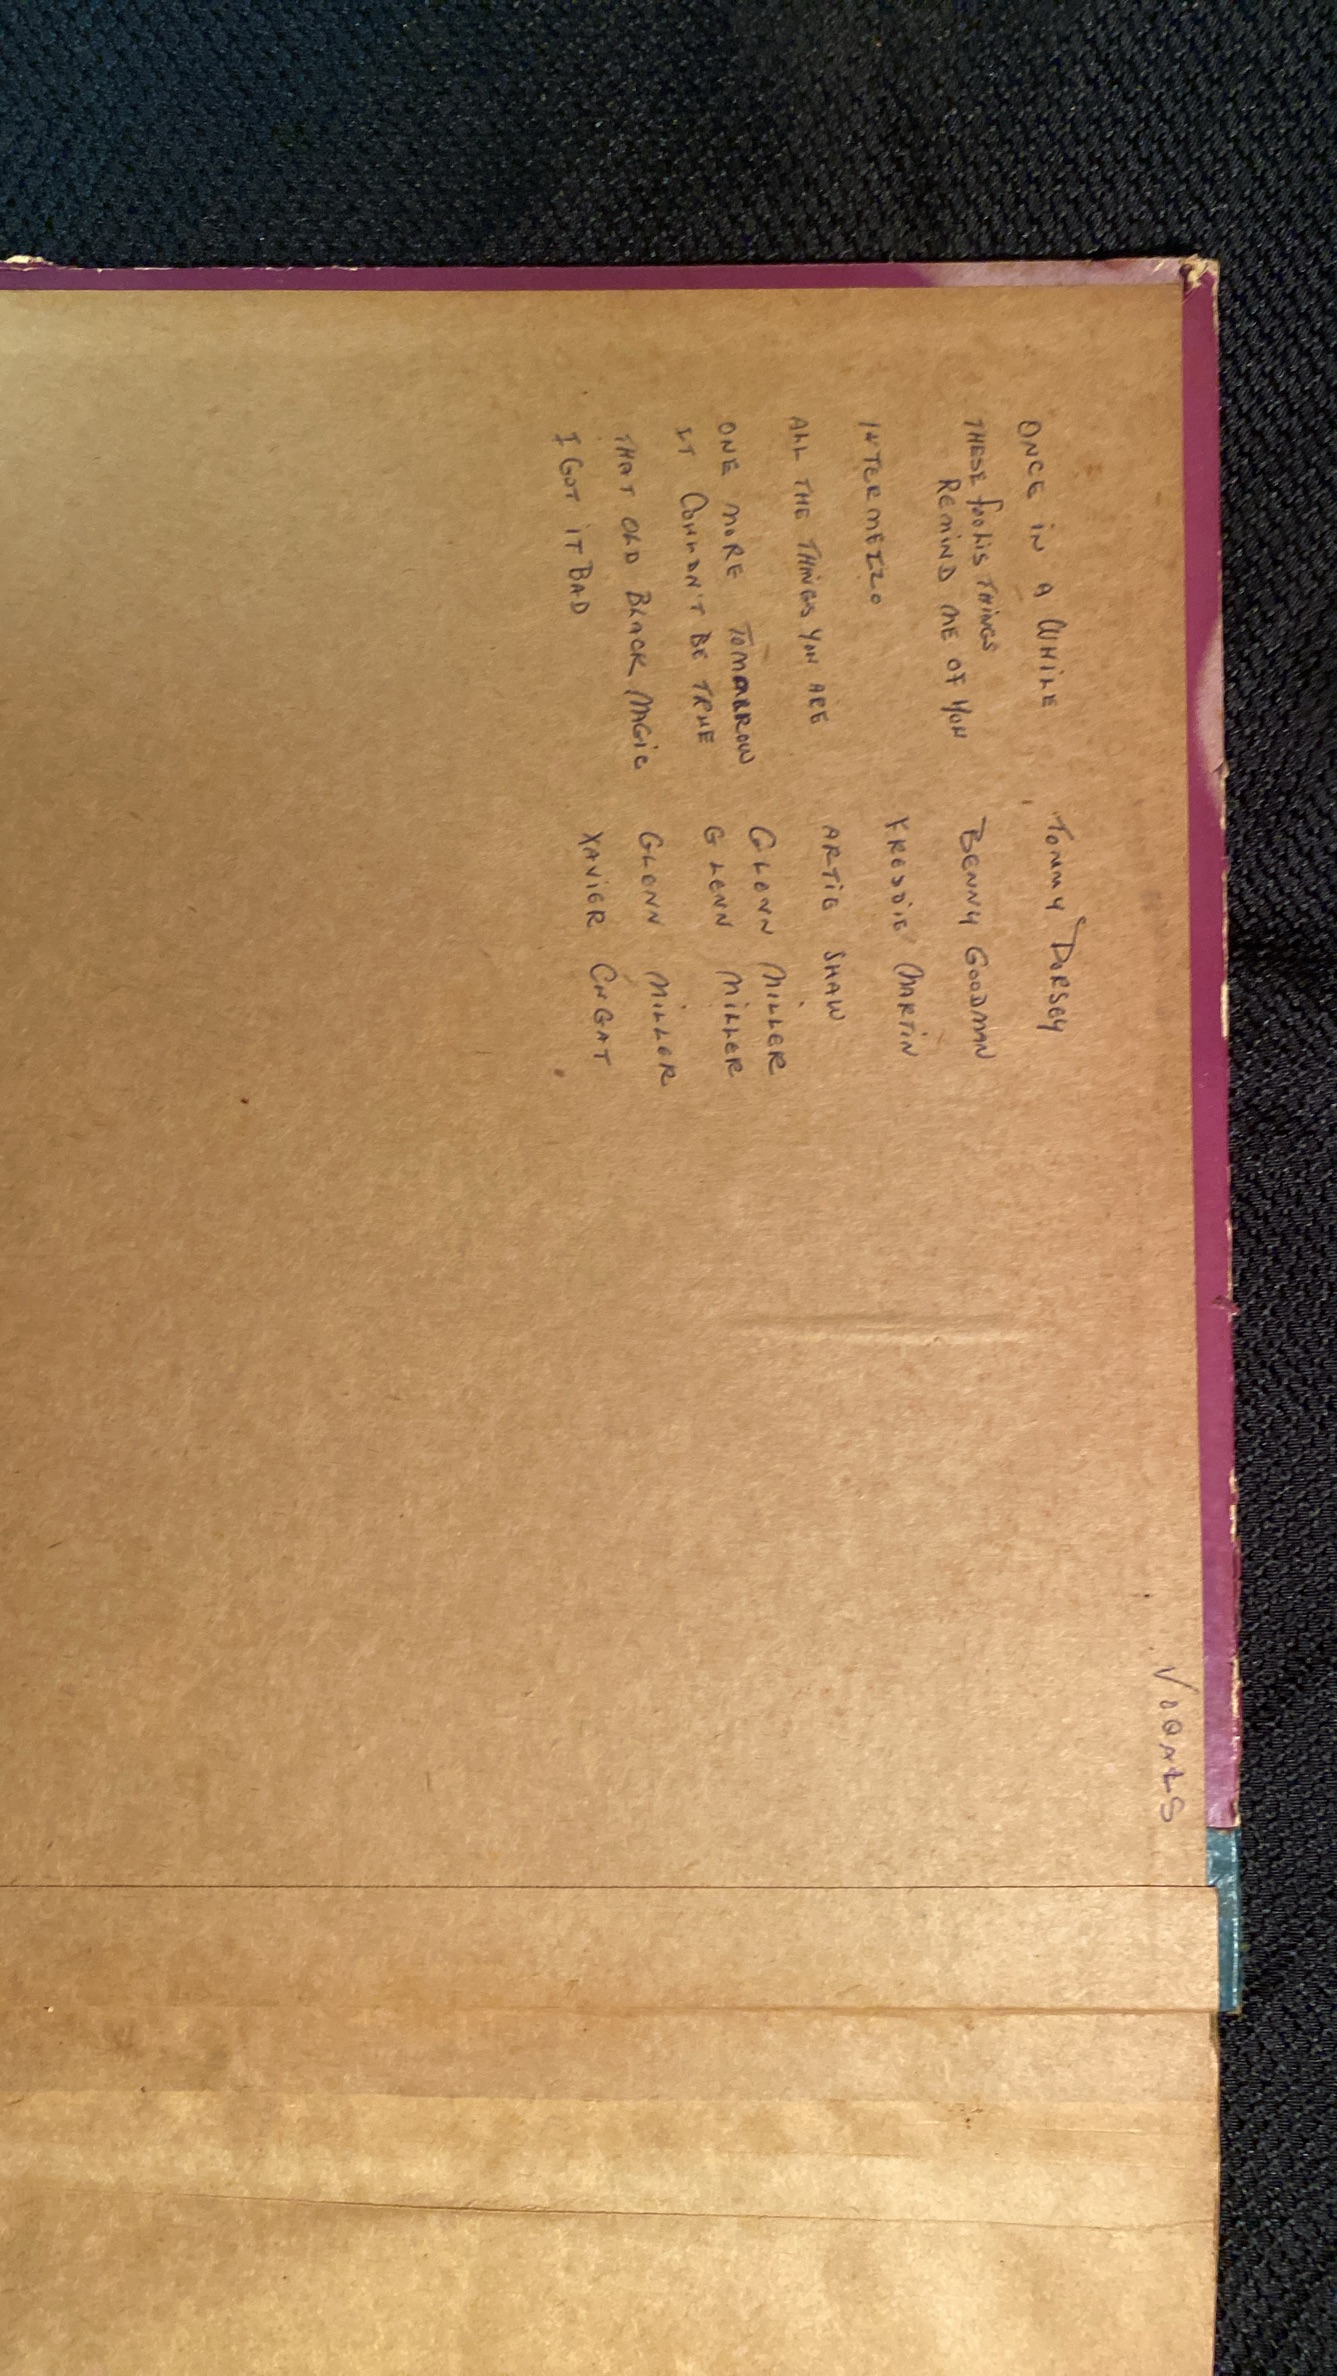 VOQALS
ONCE IN A WHILE TOMMY DORSEY
THESE FOOLIS THINGS
REMIND ME OF YOU BENNY GOODMAN
INTERMEZZO FREDDIE MARTIN
ALL THE THINGS YOU ARE ARTIE SHAW
ONE MORE TOMORROW GLENN MILLER
IT COULDN'T BE TRUE GLENN MILLER
THAT OLD BLACK MAGIC GLENN MILLER
I GOT IT BAD XAVIER CUGAT